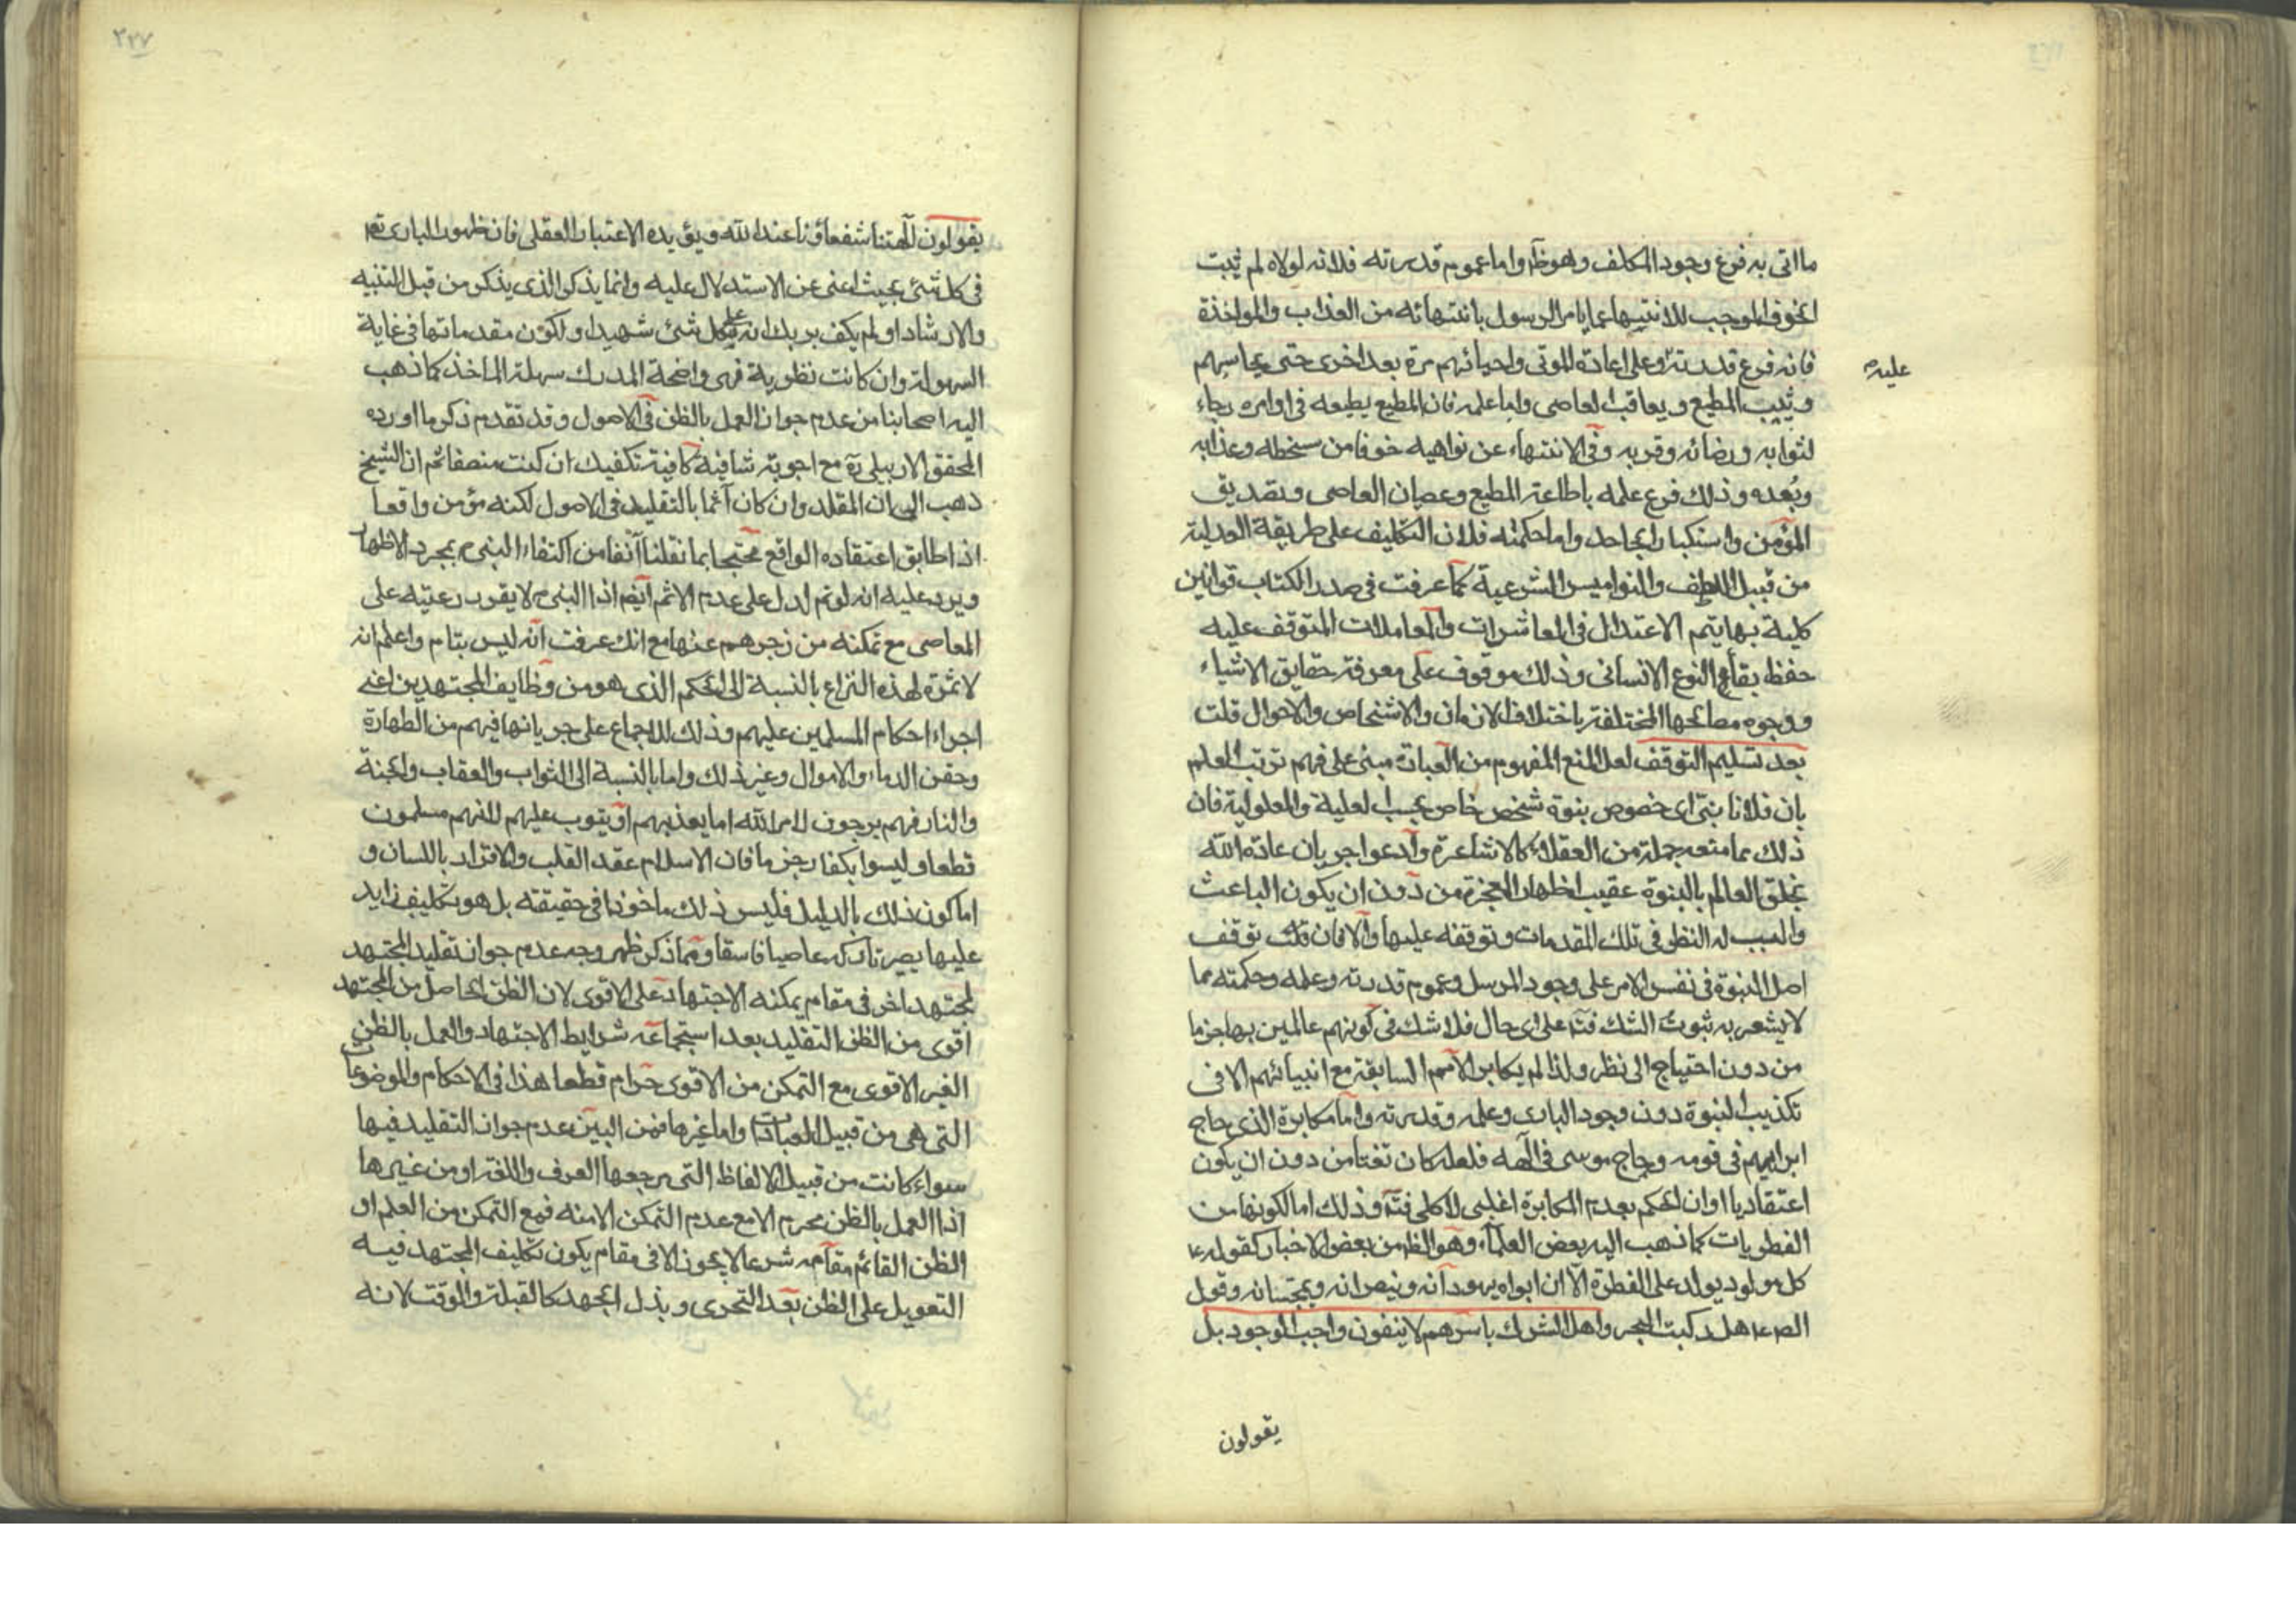 ما اتى به فرع وجود المكلف وهو ظ واما عموم قدرته فلانه لولاه لم يثبت
الخوف الموجب للانتهاء عما يامر الرسول بانتهائه من العذاب والمواخذة
فانه فرع قدرته على اعادة الموتى واحيائهم مرة بعد اخرى حتى يحاسبهم
عليه
ويثيب المطيع ويعاقب العاصى واما علمه فان المطيع يطيعه فى اوامره رجاء
لثوابه ورضائه وقربه وفى الانتهاء عن نواهيه خوفا من سخطه وعذابه
وبُعده وذلك فرع علمه باطاعة المطيع وعصيان العاصى وتصديق
المؤمن واستكبار الجاحد واما حكمته فلان التكليف على طريقة العدلية
من قبيل اللطف والنواميس الشرعية كما عرفت فى صدر الكتاب قوانين
كلية بها يتم الاعتدال فى المعاشرات والمعاملات المتوقف عليه
حفظ بقاء النوع الانسانى وذلك موقوف على معرفة حقايق الاشياء
ووجوه مصالحها المختلفة باختلاف الازمان والاشخاص والاحوال قلت
بعد تسليم التوقف لعل المنع المفهوم من العبارة مبنى على فهم ترتب العلم
بان فلانا نبى اى خصوص نبوة شخص خاص بحسب العلية والمعلولية فان
ذلك مما منعه جملة من العقلاء كالاشاعرة وادعوا جريان عادة الله
بخلق العالم بالنبوة عقيب اظهار المعجزة من دون ان يكون الباعث
والسبب له النظر فى تلك المقدمات وتوقفه عليها والا فان قلت توقف
اصل النبوة فى نفس الامر على وجود المرسل وعموم قدرته وعلمه وحكمته مما
لا يشعر به ثبوت الشك فتم على اى حال فلا شك فى كونهم عالمين بها جزما
من دون احتياج الى نظر ولذا لم يكابر الامم السابقة مع انبيائهم الا فى
تكذيب النبوة دون وجود البارى وعلمه وقدرته واما مكابرة الذى حاج
ابراهيم فى قومه وحاج موسى فى الهه فلعله كان تعنتا من دون ان يكون
اعتقاديا او ان الحكم بعدم المكابرة اغلبى لا كلى فتم وذلك اما لكونها من
الفطريات كما ذهب اليه بعض العلماء وهو الظ من بعض الاخبار كقوله ع
كل مولود يولد على الفطرة الا ان ابواه يهودانه وينصرانه ويمجسانه وقول
الص ع هل ركبت البحر واهل الشرك باسرهم لا ينفون واجب الوجود بل
يقولون
٢٣٧
يقولون آلهتنا شفعاؤنا عند الله ويؤيده الاعتبار العقلى فان ظهور البارى تع
فى كل شئ بحيث اغنى عن الاستدلال عليه وانما يذكر الذى يذكر من قبل التنبيه
والارشاد او لم يكف بربك انه على كل شئ شهيد او لكون مقدماتها فى غاية
السهولة وان كانت نظرية فهى واضحة المدرك سهلة الماخذ كما ذهب
اليه اصحابنا من عدم جواز العمل بالظن فى الاصول وقد تقدم ذكر ما اورده
المحقق الاردبيلى ره مع اجوبة شافية كافية تكفيك ان كنت منصفا ثم ان الشيخ
ذهب الى ان المقلد وان كان آثما بالتقليد فى الاصول لكنه مؤمن واقعا
اذا طابق اعتقاده الواقع محتجا بما نقلنا آنفا من اكتفاء النبى ص بمجرد الاظهار
ويرد عليه انه لو تم لدل على عدم الاثم ايضا اذ النبى ص لا يقرر رعيته على
المعاصى مع تمكنه من زجرهم عنها مع انك عرفت انه ليس بتام واعلم انه
لا ثمرة لهذه النزاع بالنسبة الى الحكم الذى هو من وظايف المجتهدين اعنى
اجراء احكام المسلمين عليهم وذلك للاجماع على جريانها فيهم من الطهارة
وحقن الدماء والاموال وغير ذلك واما بالنسبة الى الثواب والعقاب والجنة
والنار فهم يرجون لامر الله اما يعذبهم او يتوب عليهم للنهم مسلمون
قطعا وليسوا بكفار جزما فان الاسلام عقد القلب والاقرار باللسان و
اما كون ذلك بالدليل فليس ذلك ماخوذا فى حقيقته بل هو تكليف زايد
عليها يصير تاركه عاصيا فاسقا ومما ذكر ظهر وجه عدم جواز تقليد المجتهد
لمجتهد اخر فى مقام يمكنه الاجتهاد على الاقوى لان الظن الحاصل من المجتهد
اقوى من الظن التقليد بعد استجماعه شرايط الاجتهاد والعمل بالظن
الغير الاقوى مع التمكن من الاقوى حرام قطعا هذا فى الاحكام والموضوعات
التى هى من قبيل العبادات واما غيرها فمن البين عدم جواز التقليد فيها
سواء كانت من قبيل الالفاظ التى مرجعها العرف واللغة او من غيرها
اذ العمل بالظن محرم الا مع عدم التمكن الا منه فمع التمكن من العلم او
الظن القائم مقامه شرعا لا يجوز الا فى مقام يكون تكليف المجتهد فيه
التعويل على الظن بعد التحرى وبذل الجهد كالقبلة والوقت لانه